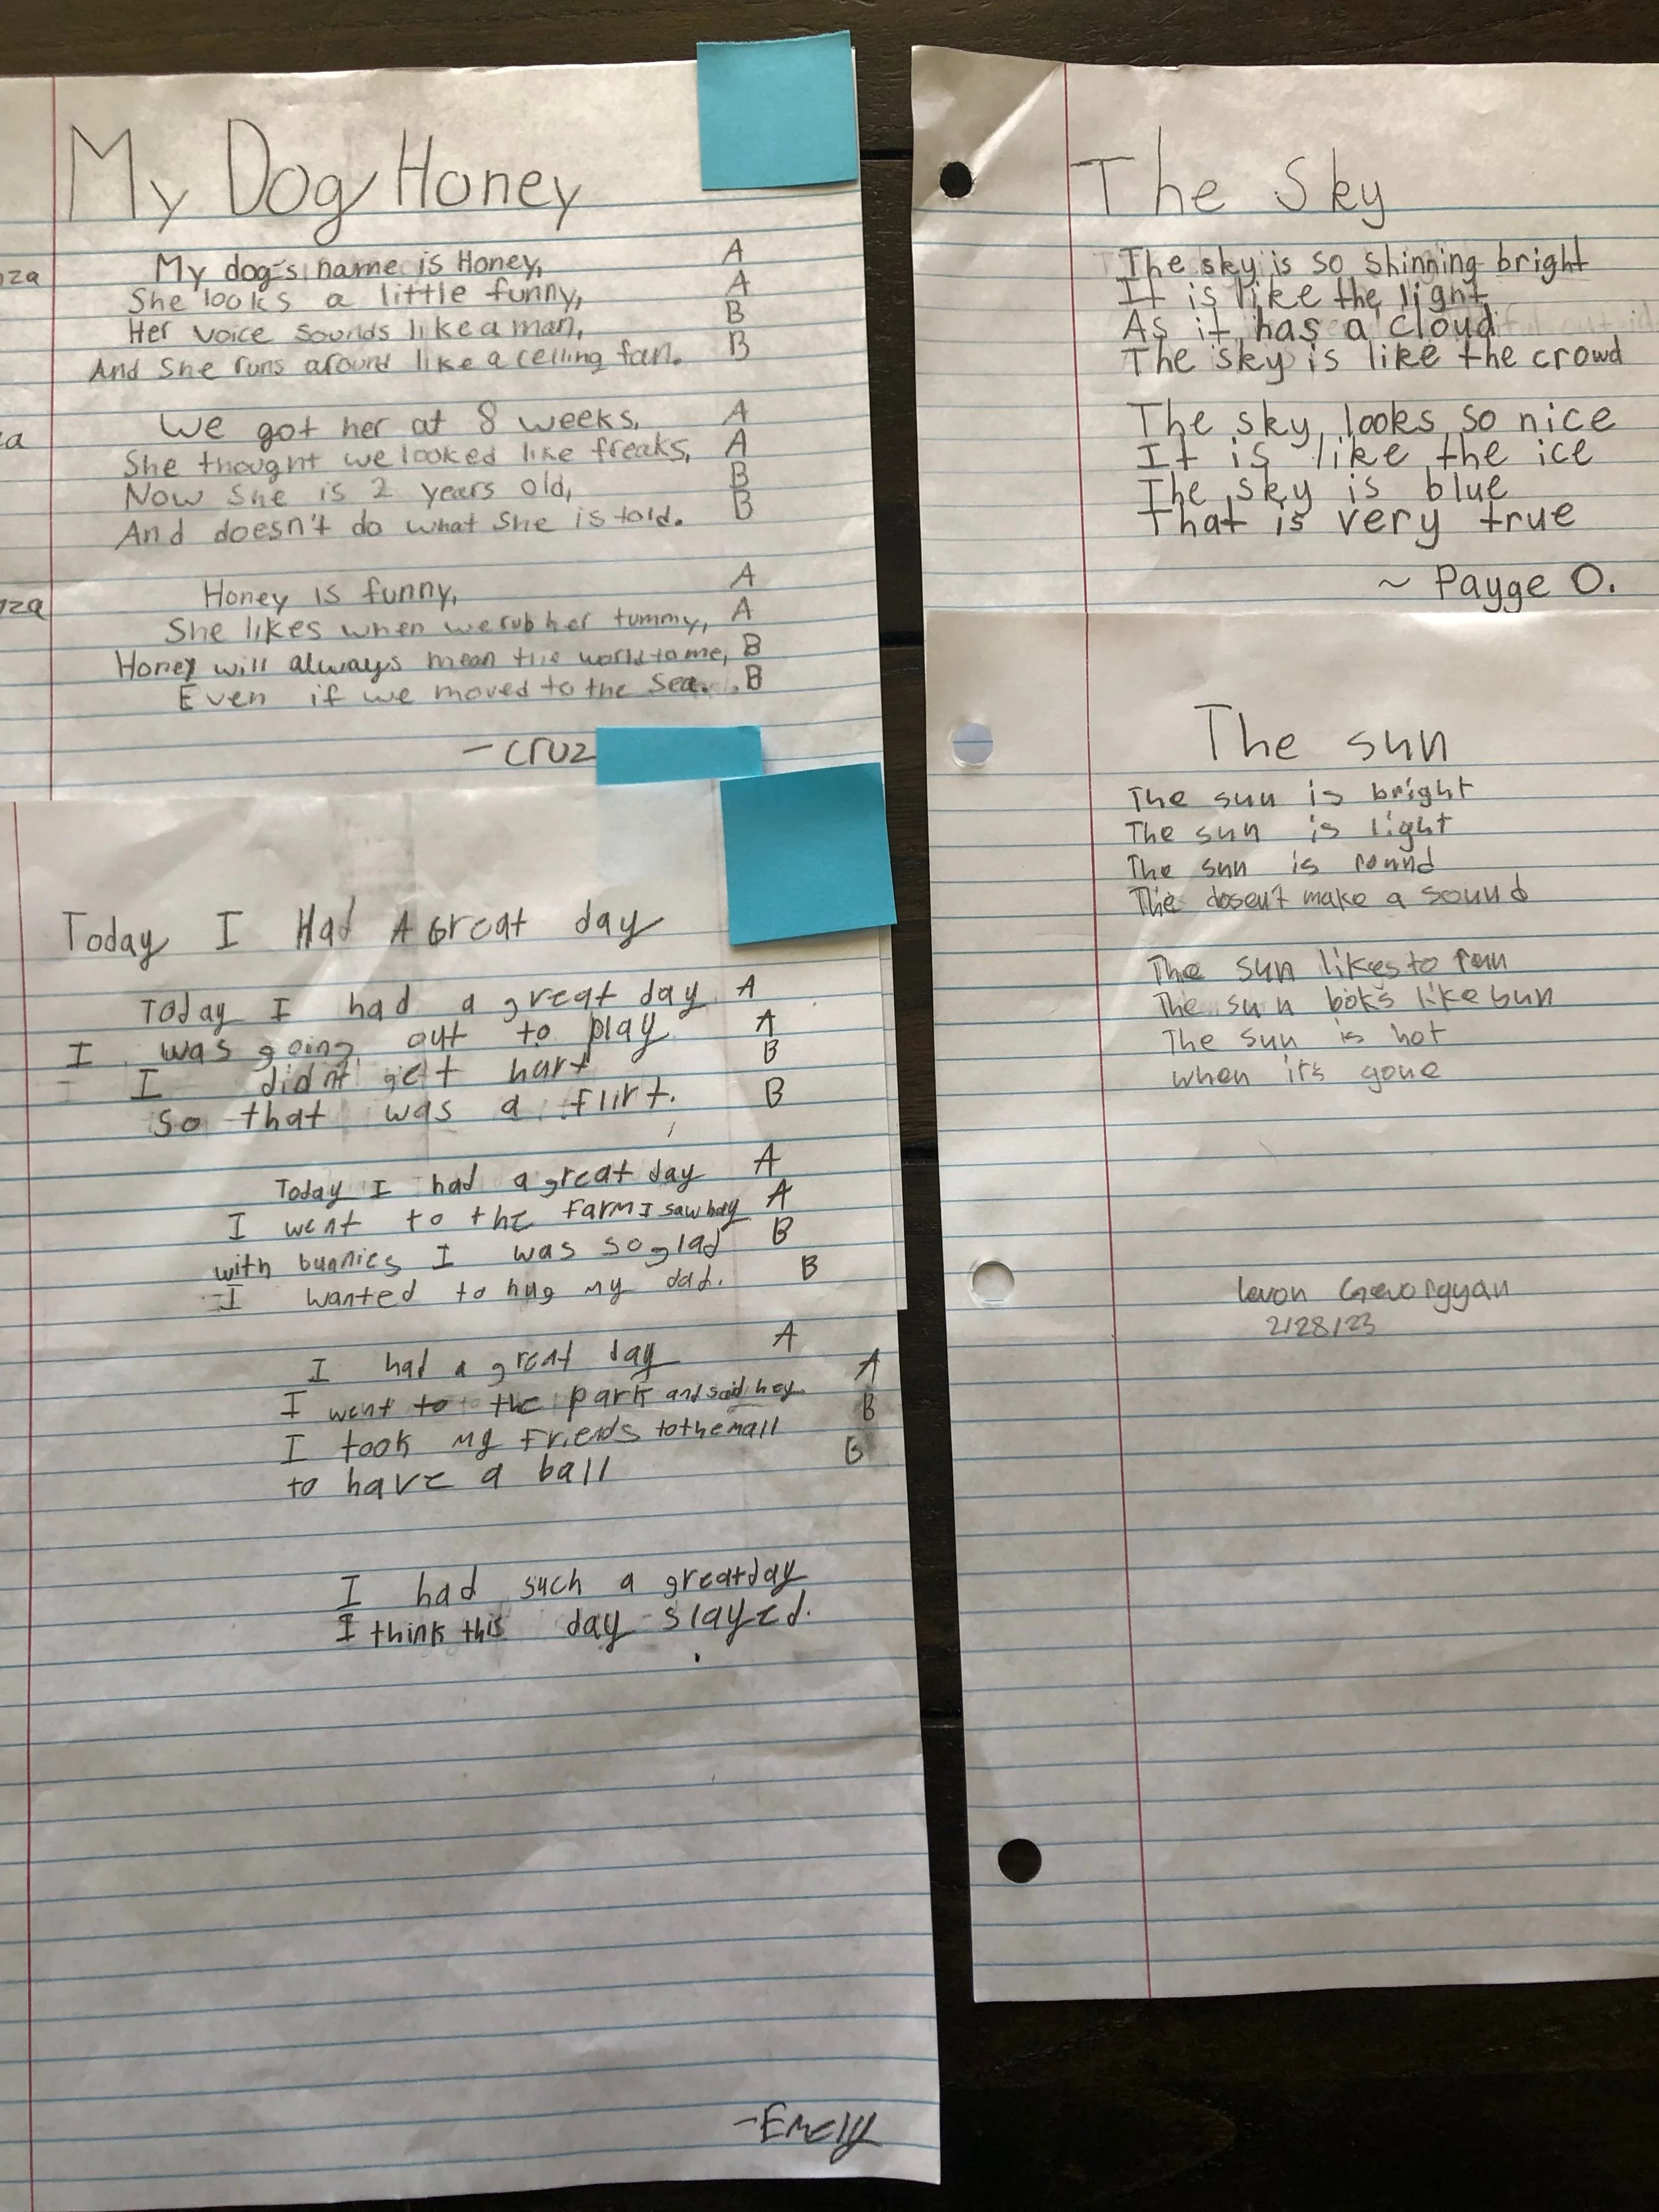 My Dog Honey
nza
My dog's name is Honey, A
She looks a little funny, A
Her voice sounds like a man, B
And She runs around like a celling fan. B
za
We got her at 8 weeks, A
She thought we looked like freaks, A
Now She is 2 years old, B
And doesn't do what She is told. B
nza
Honey is funny, A
She likes when we rub her tummy, A
Honey will always mean the world to me, B
Even if we moved to the Sea. B
- Cruz
Today I Had A Great day
Today I had a great day A
I was going out to play A
I didnt get hurt B
So that was a flirt. B
Today I had a great day A
I went to the farm I saw hay A
with bunnies I was so glad B
I wanted to hug my dad. B
I had a great day A
I went to the park and said hey A
I took my Friends to the mall B
to have a ball B
I had such a great day
I think this day slayed.
-Emely
The Sky
The sky is so shinning bright
It is like the light
As it has a cloud
The sky is like the crowd
The sky looks so nice
It is like the ice
The sky is blue
That is very true
~ Payge O.
The sun
The sun is bright
The sun is light
The sun is round
The dosen't make a sound
The sun likes to run
The sun looks like bun
The sun is hot
when it's gone
levon Gevorgyan
2/28/23